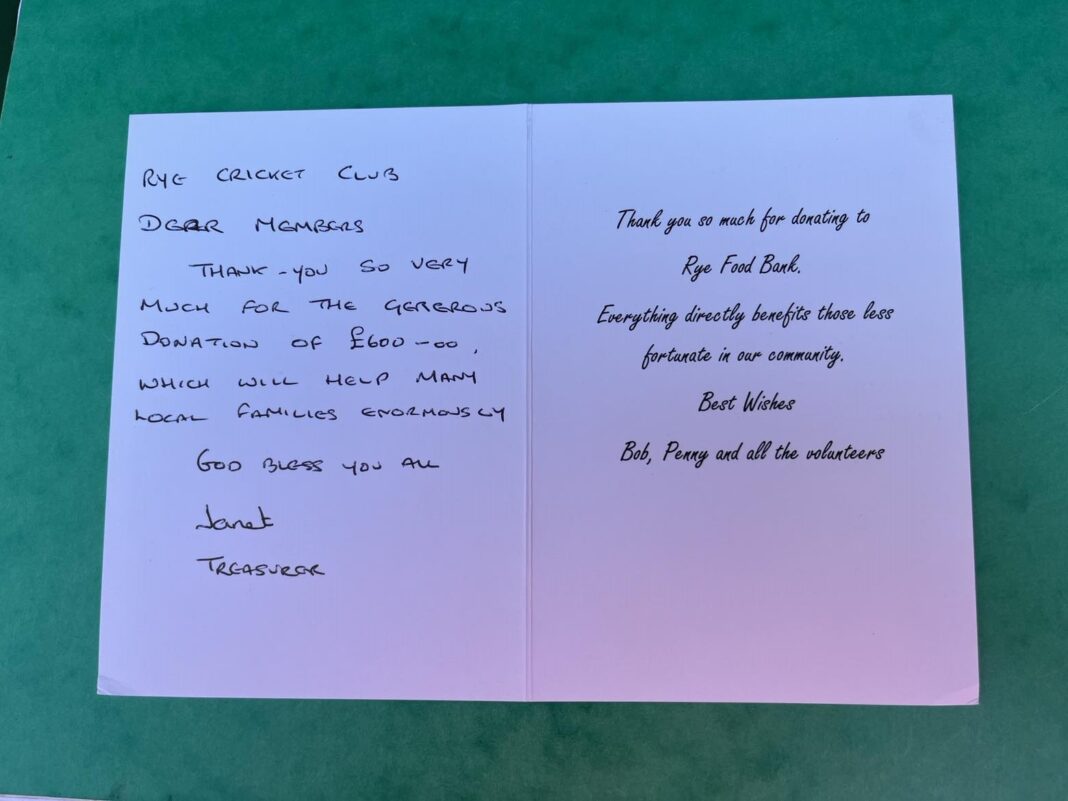 RYE CRICKET CLUB
DEAR MEMBERS
THANK-YOU SO VERY
MUCH FOR THE GENEROUS
DONATION OF £600-00,
WHICH WILL HELP MANY
LOCAL FAMILIES ENORMOUSLY
GOD BLESS YOU ALL
Janet
TREASURER
Thank you so much for donating to
Rye Food Bank.
Everything directly benefits those less
fortunate in our community.
Best Wishes
Bob, Penny and all the volunteers